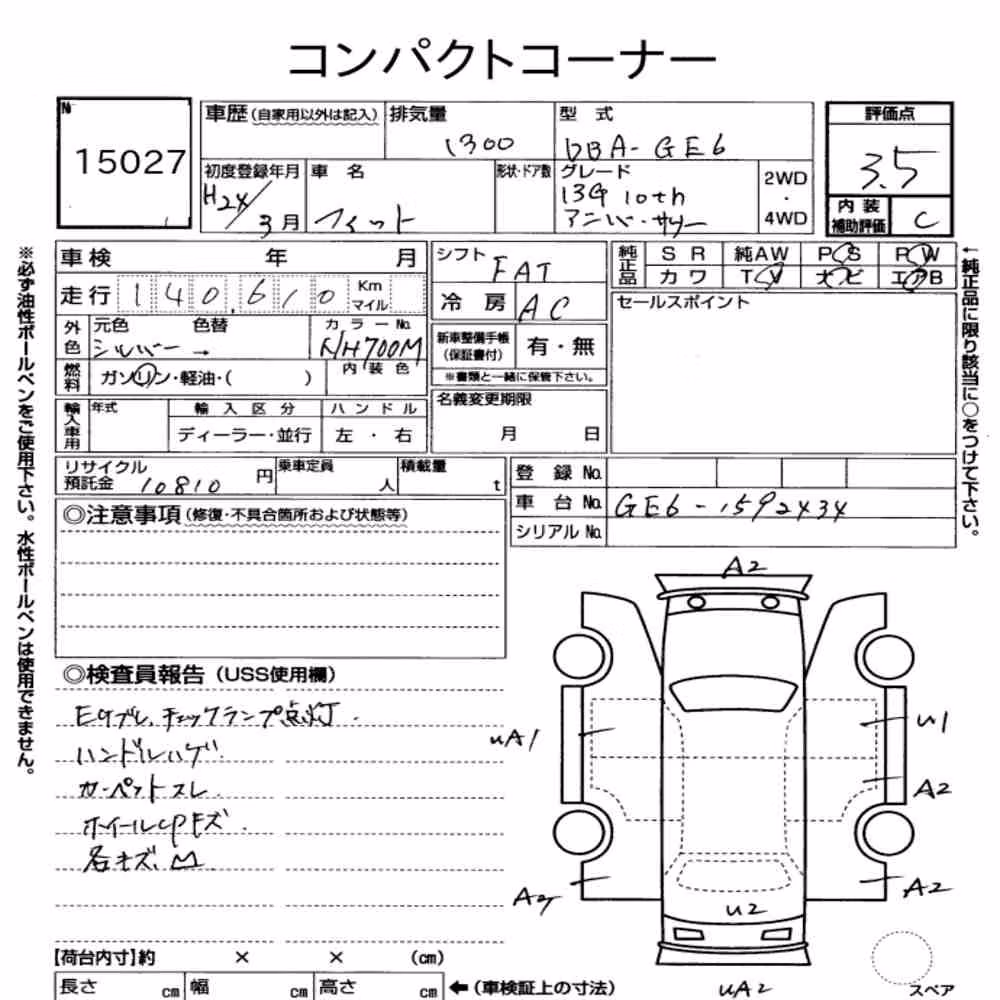 コンパクトコーナー
№
15027
車歴(自家用以外は記入)
排気量
1300
型 式
DBA-GE6
評価点
3.5
初度登録年月
H24/3月
車 名
フィット
形状・ドア数
グレード
13G 10th
アニバーサリー
2WD
・
4WD
内 装
補助評価
C
車検 年 月
走行 140,610 Km
マイル
シフト
FAT
冷 房
AC
純正品
S R 純AW P S P W
カ ワ T V ナ ビ エアB
セールスポイント
外色
元色 色替
シルバー →
カ ラ ー No.
NH700M
内 装 色
新車整備手帳
(保証書付)
有・無
※書類と一緒に保管下さい。
燃料
ガソリン・軽油・( )
名義変更期限
月 日
輸入車用
年式
輸 入 区 分
ディーラー・並行
ハ ン ド ル
左 ・ 右
リサイクル
預託金
10810 円
乗車定員
人
積載量
t
登 録 No.
車 台 No.
GE6-1592434
シリアル No.
◎注意事項(修復・不具合箇所および状態等)
◎検査員報告(USS使用欄)
Egブレ、チェックランプ点灯.
ハンドルハゲ
カーペットスレ
ホイールCPキズ.
各キズ、M
A2
UA1
U1
A2
A2
U2
UA2
スペア
【荷台内寸】約 × × (cm)
長さ cm 幅 cm 高さ cm
←(車検証上の寸法)
※必ず油性ボールペンをご使用下さい。水性ボールペンは使用できません。
←純正品に限り該当に○をつけて下さい。